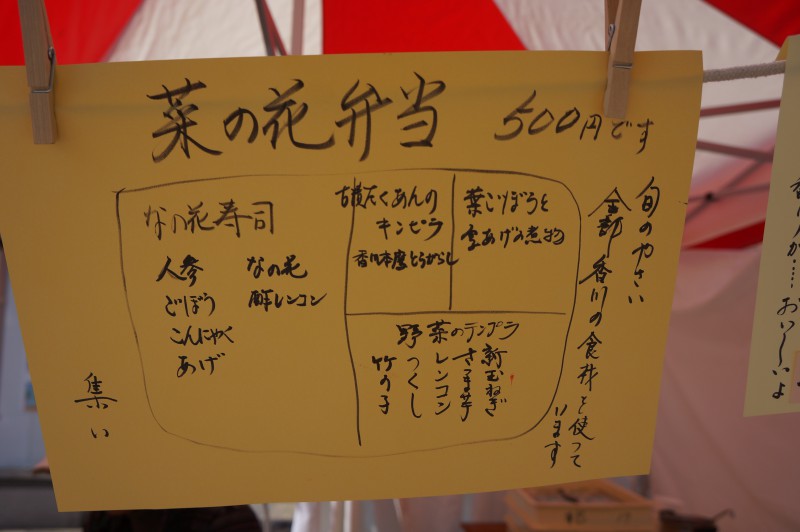 菜の花弁当 500円です
旬のやさい
全部香川の食材を使って
います
なの花寿司
人参
ごぼう
こんにゃく
あげ
なの花
酢レンコン
古漬たくあんの
キンピラ
香川本鷹とうがらし
葉ごぼうと
空あげの煮物
野菜のテンプラ
新玉ねぎ
さつま芋
レンコン
つくし
竹の子
集い
おいしいよ